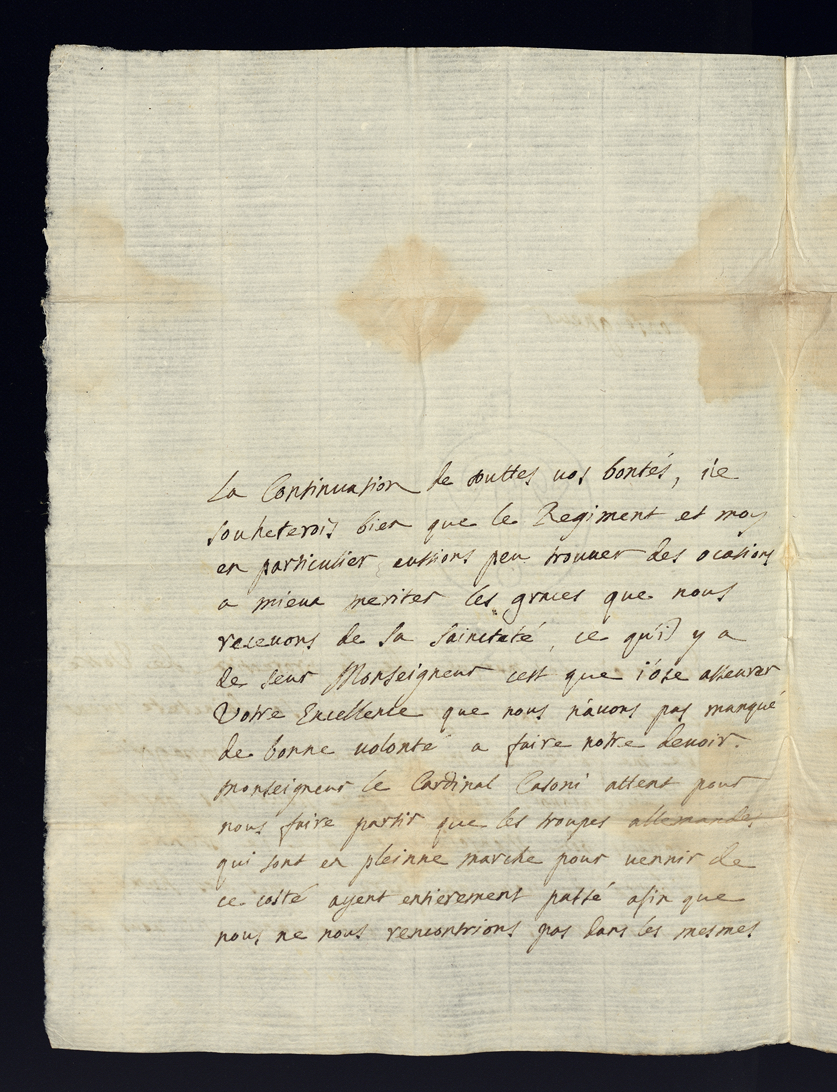 La Continuation de touttes vos bontés, i'e
souheterois bien que le Regiment et moy
en particulier eussions peu trouuer des ocasions
a mieux meriter les graces que nous
receuons de sa saincteté, ce qu'il y a
de seur Monseigneur cest que i'ose asseurer
Votre Excellence que nous n'auons pas manqué
de bonne volonté a faire notre deuoir.
Monseigneur le Cardinal Casoni attent pour
nous faire partir que les troupes allemandes
qui sont en pleinne marche pour uennir de
ce costé ayent entierement passé afin que
nous ne nous rencontrions pas dans les mesmes